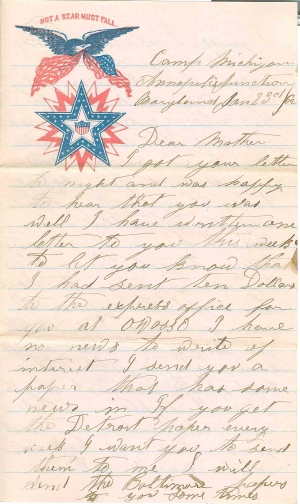 NOT A STAR MUST FALL.
Camp Michigan
Annapolis Junction
Maryland Jan 23rd/62
Dear Mother
I got your letter
to night and was happy
to hear that you was
well I have written one
letter to you this week
to let you know that
I had sent ten Dollars
to the express office for
you at Owosso I have
no news to write of
interist I send you a
paper that has some
news in If you get
the Detroit paper every
week I want you to send
them to me I will
send the Baltimore papers
to you some times